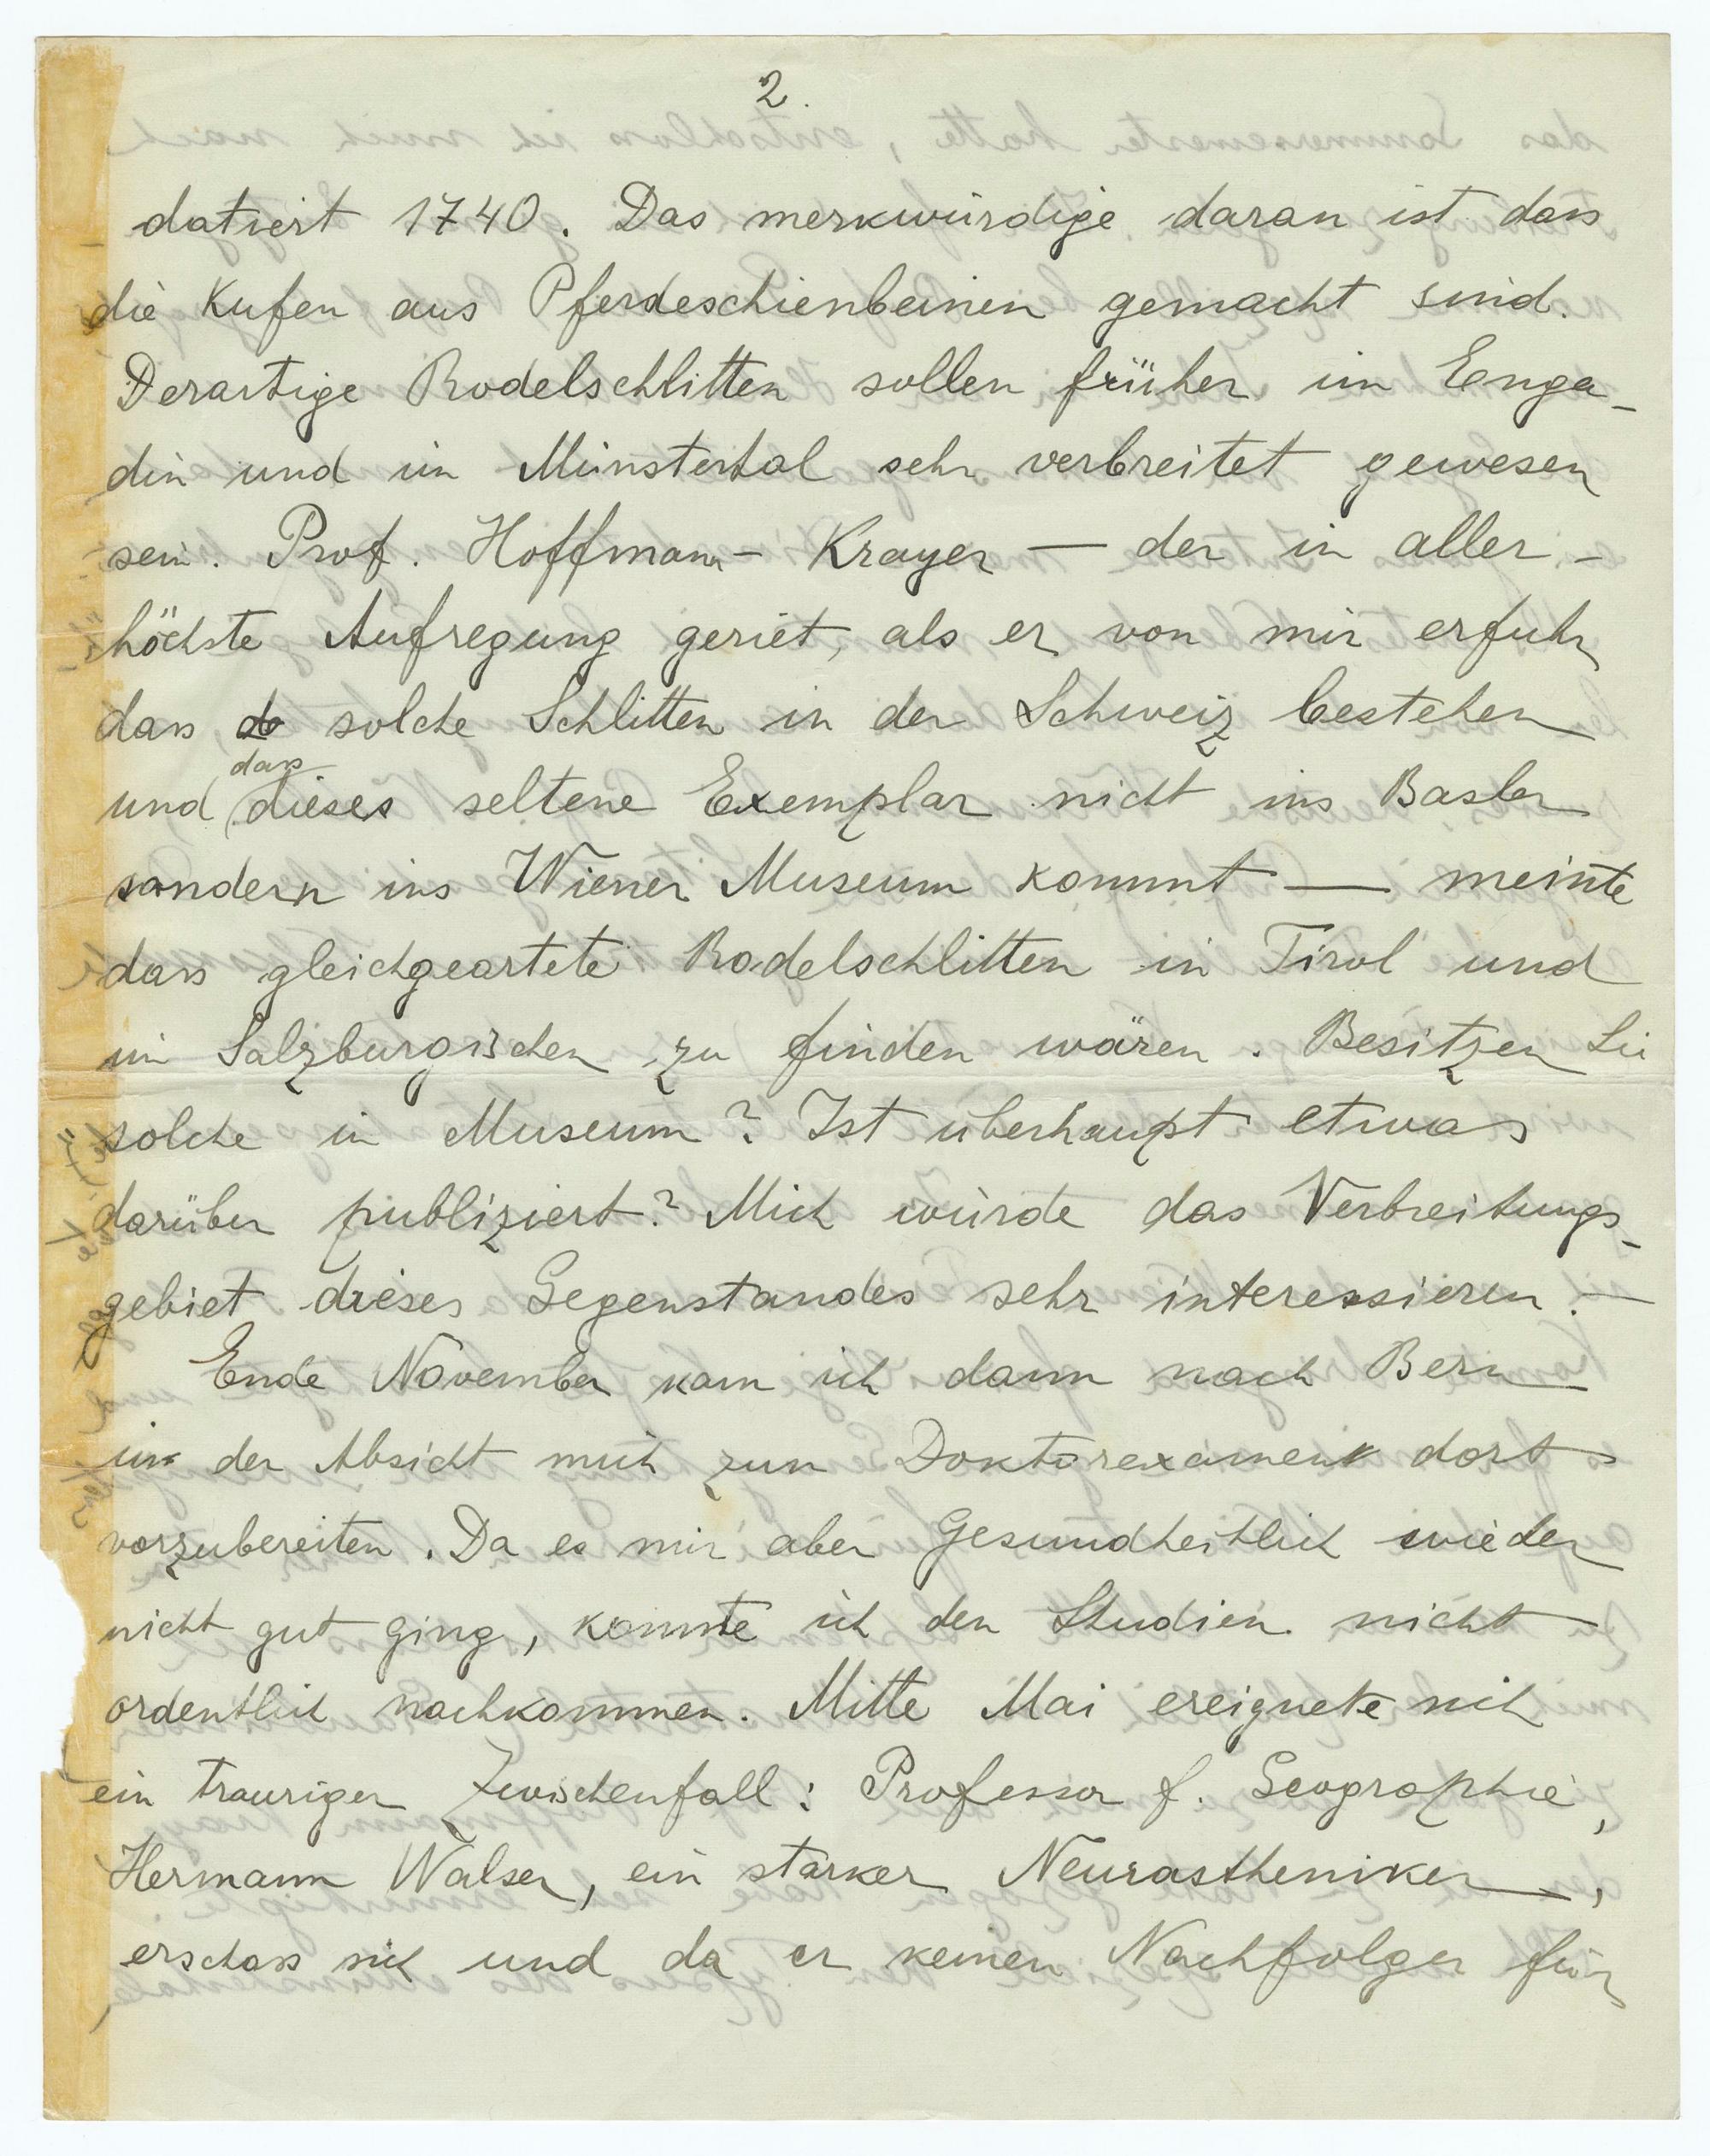 2.
datiert 1740. Das merkwürdige daran ist dass
die Kufen aus Pferdeschienbeinen gemacht sind.
Derartige Rodelschlitten sollen früher im Enga-
din und im Münstertal sehr verbreitet gewesen
sein. Prof. Hoffmann-Krayer — der in aller-
höchste Aufregung geriet, als er von mir erfuhr
dass solche Schlitten in der Schweiz bestehen
dass
und dieses seltene Exemplar nicht ins Basler
sondern ins Wiener Museum kommt — meinte
dass gleichgeartete Rodelschlitten in Tirol und
im Salzburgischen zu finden wären. Besitzen Sie
solche im Museum? Ist überhaupt etwas
darüber publiziert? Mich würde das Verbreitungs-
gebiet dieses Gegenstandes sehr interessieren. —
Ende November kam ich dann nach Bern
in der Absicht mich zum Doktorexamen dort
vorzubereiten. Da es mir aber gesundheitlich wieder
nicht gut ging, konnte ich den Studien nicht
ordentlich nachkommen. Mitte Mai ereignete sich
ein trauriger Zwischenfall: Professor f. Geographie,
Hermann Walser, ein starker Neurastheniker,
erschoss sich und da er keinen Nachfolger für